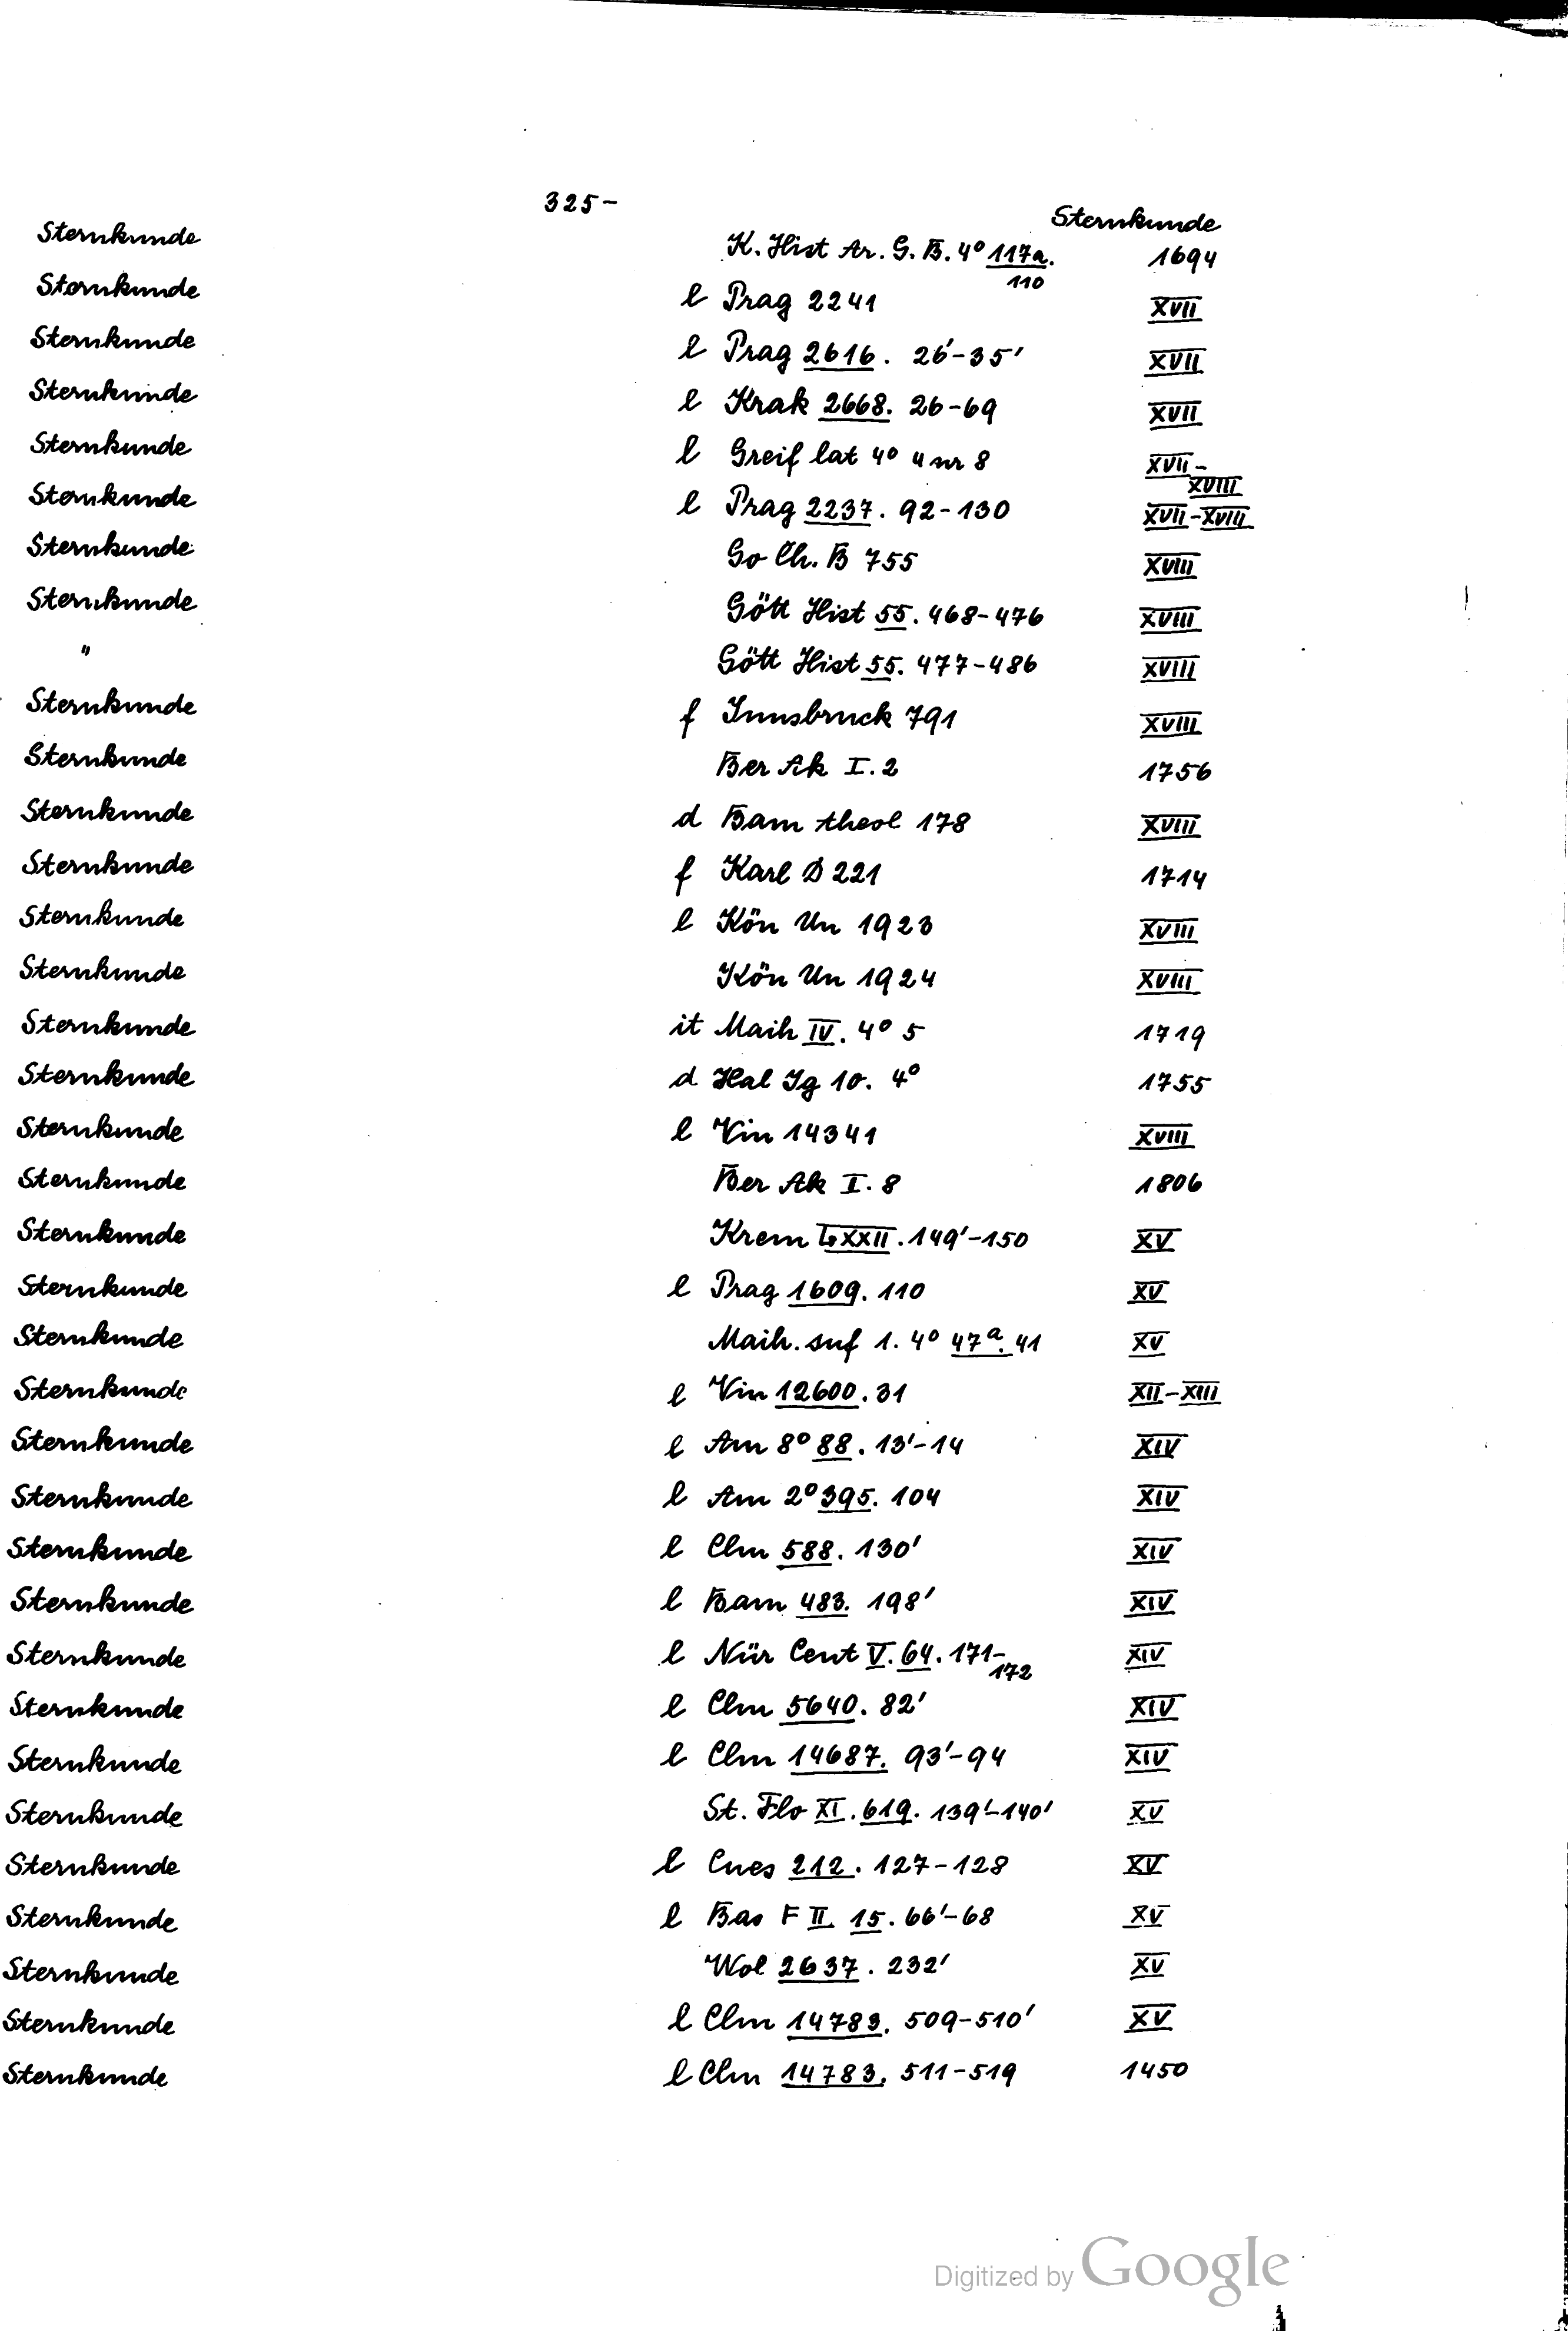 325-
Sternkunde
Sternkunde K. Hist Ar. G. B. 4° 117a. 110 1694
Sternkunde l Prag 2241 XVII
Sternkunde l Prag 2616. 26'-35' XVII
Sternkunde l Krak 2668. 26-69 XVII
Sternkunde l Greif lat 4° 4 nr 8 XVII-XVIII
Sternkunde l Prag 2237. 92-130 XVII-XVIII
Sternkunde Go Ch. B 755 XVIII
Sternkunde Gött Hist 55. 468-476 XVIII
" Gött Hist 55. 477-486 XVIII
Sternkunde f Innsbruck 791 XVIII
Sternkunde Ber Ak I. 2 1756
Sternkunde d Bam theol 178 XVIII
Sternkunde f Karl D 221 1714
Sternkunde l Kön Un 1923 XVIII
Sternkunde Kön Un 1924 XVIII
Sternkunde it Maih IV. 4° 5 1719
Sternkunde d Hal Yg 10. 4° 1755
Sternkunde l Vin 14341 XVIII
Sternkunde Ber Ak I. 8 1806
Sternkunde Krem LXXII. 149'-150 XV
Sternkunde l Prag 1609. 110 XV
Sternkunde Maih. suf 1. 4° 47a. 41 XV
Sternkunde l Vin 12600. 31 XII-XIII
Sternkunde l Am 8° 88. 13'-14 XIV
Sternkunde l Am 2° 395. 104 XIV
Sternkunde l Clm 588. 130' XIV
Sternkunde l Bam 483. 198' XIV
Sternkunde l Nür Cent V. 64. 171-172 XIV
Sternkunde l Clm 5640. 82' XIV
Sternkunde l Clm 14687. 93'-94 XIV
Sternkunde St. Flo XI. 619. 139'-140' XV
Sternkunde l Cues 212. 127-128 XV
Sternkunde l Bas F II. 15. 66'-68 XV
Sternkunde Wol 2637. 232' XV
Sternkunde l Clm 14783. 509-510' XV
Sternkunde l Clm 14783. 511-519 1450
Digitized by Google